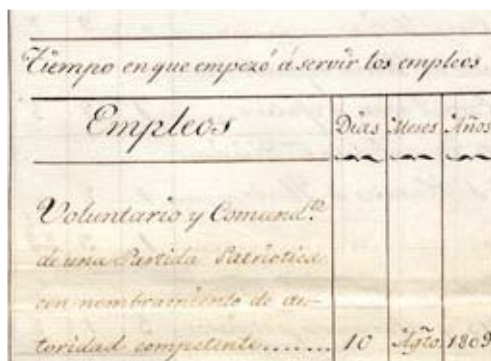 Tiempo en que empezó á servir los empleos.
Empleos Dias Meses Años
Voluntario y Comand.te
de una Partida Patriotica
con nombramiento de au-
toridad competente....... 10 Agto. 1809